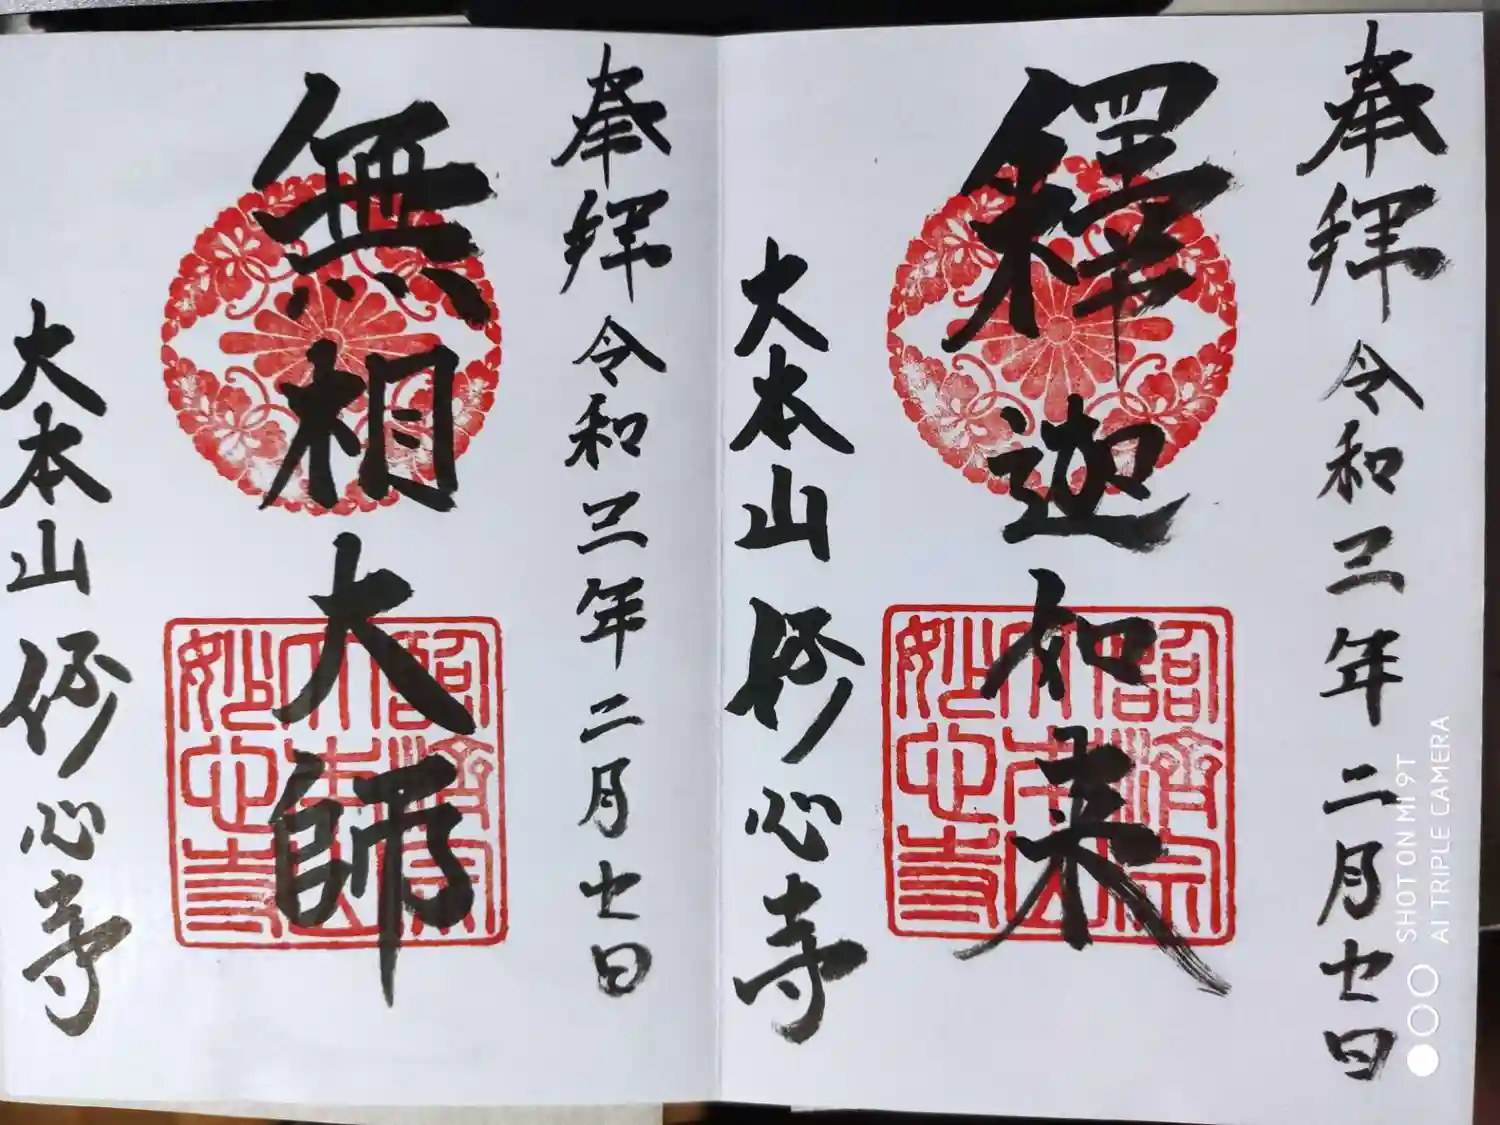 奉拝 令和三年二月廿日
釋迦如来
臨濟宗
大本山
妙心寺
大本山 妙心寺
奉拝 令和三年二月廿日
無相大師
臨濟宗
大本山
妙心寺
大本山 妙心寺
SHOT ON MI 9T
AI TRIPLE CAMERA